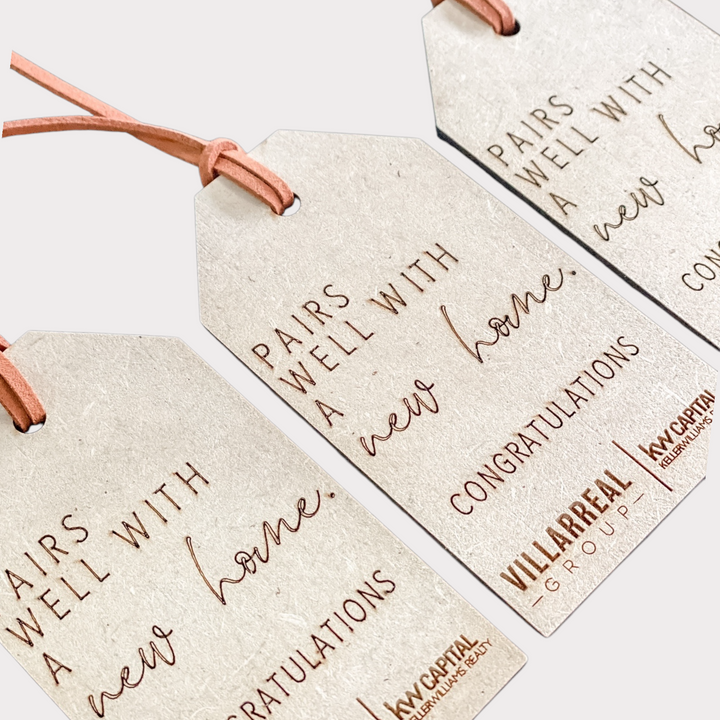 PAIRS
WELL WITH
A new home.
CONGRATULATIONS
VILLARREAL
GROUP
kw CAPITAL
KELLERWILLIAMS. REALTY
PAIRS
WELL WITH
A new
AIRS
WELL WITH
A new home.
RATULATIONS
kw CAPITAL
KELLERWILLIAMS. REALTY